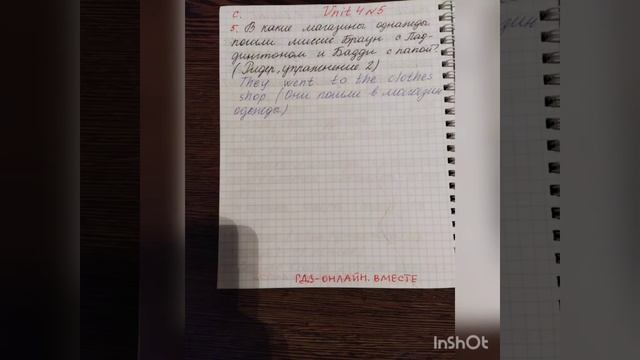 с. Unit 4 №5
5. В какие магазины однажды
пошли миссис Браун с Пад-
дингтоном и Бадди с папой?
(Ридер, упражнение 2)
They went to the clothes
shop. (Они пошли в магазин
одежды)
ГДЗ-ОНЛАЙН. ВМЕСТЕ
InShOt